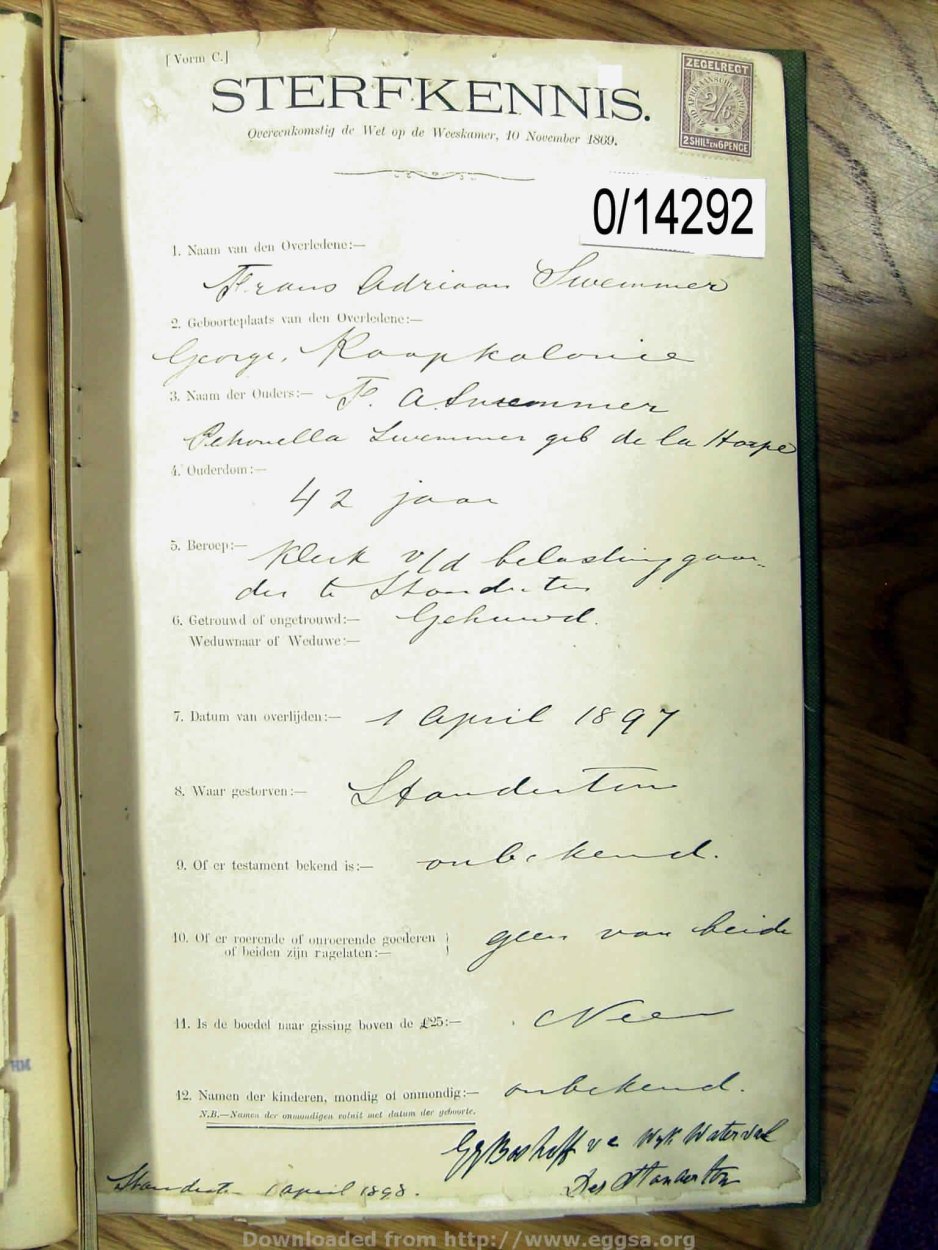 [ Vorm C.]
ZEGELREGT
ZUID AFRIKAANSCHE REPUBLIEK
2/6
2 SHILS EN 6 PENCE
STERFKENNIS.
Overeenkomstig de Wet op de Weeskamer, 10 November 1869.
0/14292
1. Naam van den Overledene:—
Frans Adriaan Swemmer
2. Geboorteplaats van den Overledene:—
George, Kaapkolonie
3. Naam der Ouders:— F. A. Swemmer
Petronella Swemmer geb de la Harpe
4. Ouderdom:—
42 jaar
5. Beroep:— Klerk v/d belastinggaar
der te Standerton
6. Getrouwd of ongetrouwd:— Gehuwd.
Weduwnaar of Weduwe:—
7. Datum van overlijden:— 1 April 1897
8. Waar gestorven:— Standerton
9. Of er testament bekend is:— onbekend.
10. Of er roerende of onroerende goederen } geen van beide
of beiden zijn nagelaten:—
11. Is de boedel naar gissing boven de £25:— Neen
12. Namen der kinderen, mondig of onmondig:— onbekend.
N.B.—Namen der onmondigen voluit met datum der geboorte.
Boshoff vc Wyk Waterval
Standerton 1 April 1898. Des Standerton
Downloaded from http://www.eggsa.org